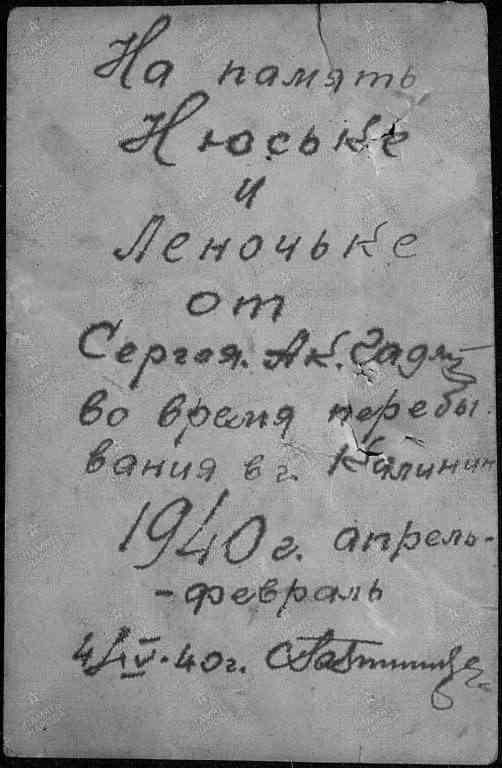 На память
Нюське
и
Леночьке
от
Сергея. Ак.
во время перебы
вания в г. Калинин
1940 г. апрель-
-февраль
4/IV-40г.